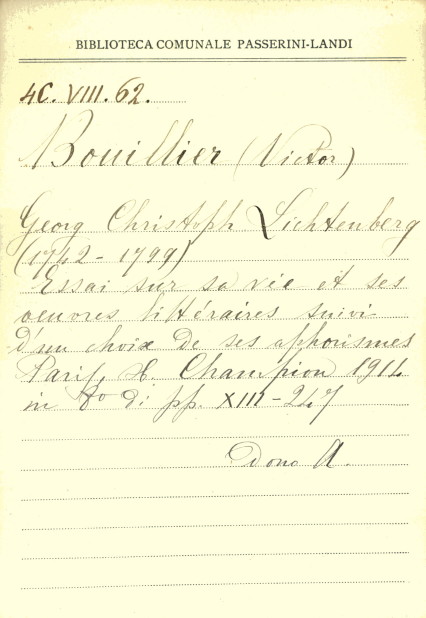 BIBLIOTECA COMUNALE PASSERINI-LANDI
4C. VIII. 62.
Bouillier (Victor)
Georg Christoph Lichtenberg
(1742 - 1799)
Essai sur sa vie et ses
oeuvres littéraires suivi
d'un choix de ses aphorismes
Paris, H. Champion 1914
in 8º di pp. XIII - 247
Dono A.